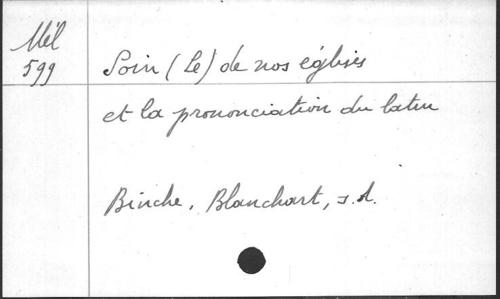 Mél
599
Soin (Le) de nos églises
et la prononciation du latin
Binche, Blanchart, s.d.